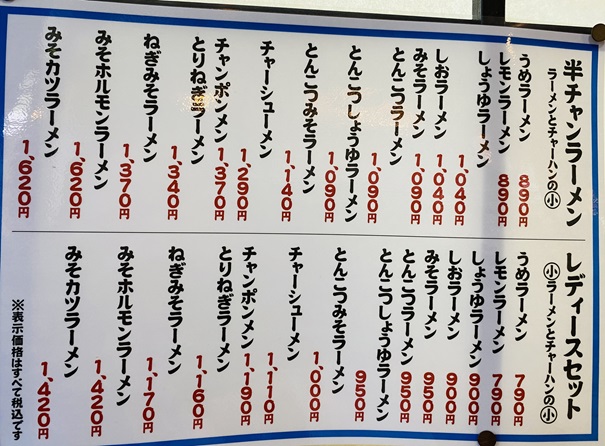 半チャンラーメン
ラーメンとチャーハンの小
うめラーメン 890円
レモンラーメン 890円
しょうゆラーメン 1,040円
しおラーメン 1,040円
みそラーメン 1,090円
とんこつラーメン 1,090円
とんこつしょうゆラーメン 1,090円
とんこつみそラーメン 1,140円
チャーシューメン 1,290円
チャンポンメン 1,370円
とりねぎラーメン 1,340円
ねぎみそラーメン 1,370円
みそホルモンラーメン 1,620円
みそカツラーメン 1,620円
レディースセット
小ラーメンとチャーハンの小
うめラーメン 790円
レモンラーメン 790円
しょうゆラーメン 900円
しおラーメン 900円
みそラーメン 950円
とんこつラーメン 950円
とんこつしょうゆラーメン 950円
とんこつみそラーメン 1,000円
チャーシューメン 1,110円
チャンポンメン 1,190円
とりねぎラーメン 1,160円
ねぎみそラーメン 1,170円
みそホルモンラーメン 1,420円
みそカツラーメン 1,420円
※表示価格はすべて税込です